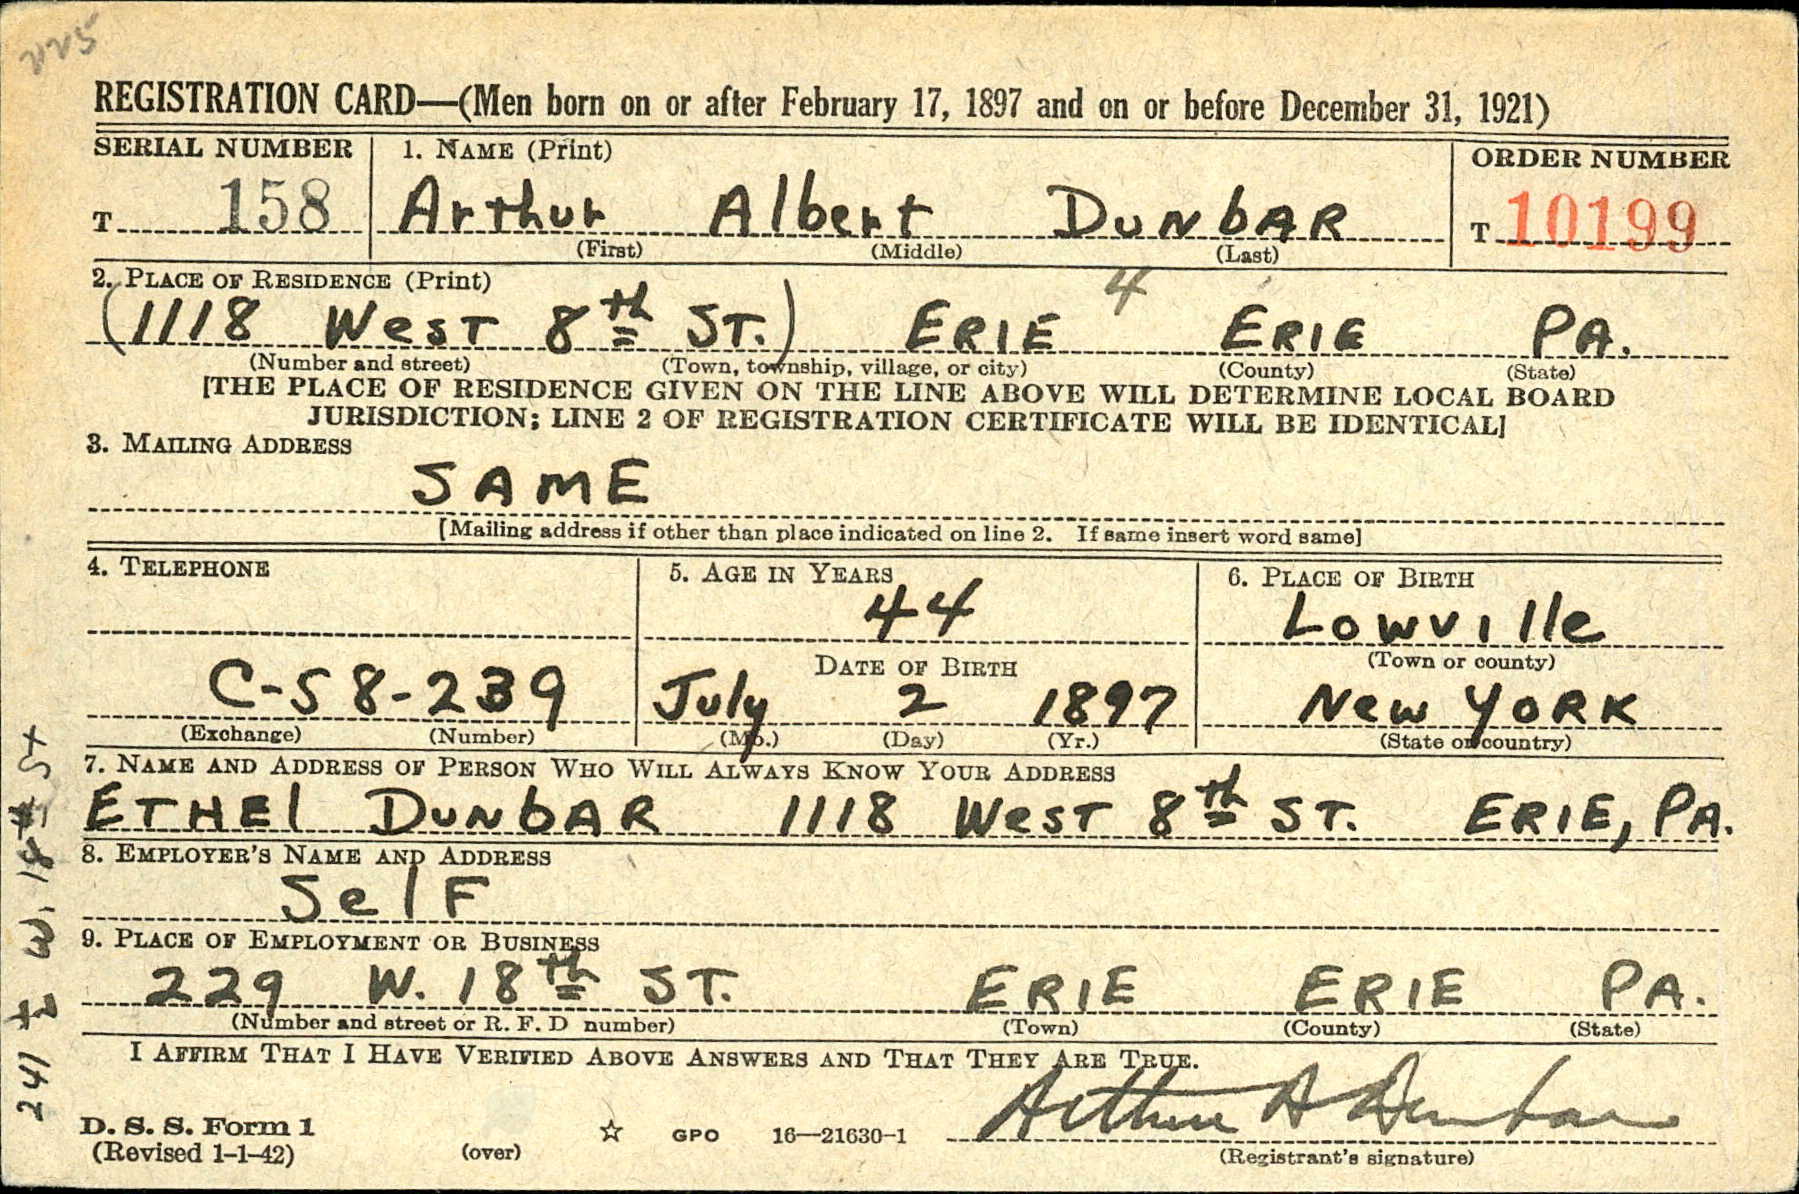 225
REGISTRATION CARD—(Men born on or after February 17, 1897 and on or before December 31, 1921)
SERIAL NUMBER 1. NAME (Print) ORDER NUMBER
T 158 Arthur Albert DUNbAR T 10199
(First) (Middle) (Last)
2. PLACE OF RESIDENCE (Print) 4
(1118 West 8th ST.) ERIE ERIE PA.
(Number and street) (Town, township, village, or city) (County) (State)
[THE PLACE OF RESIDENCE GIVEN ON THE LINE ABOVE WILL DETERMINE LOCAL BOARD
JURISDICTION; LINE 2 OF REGISTRATION CERTIFICATE WILL BE IDENTICAL]
3. MAILING ADDRESS
SAME
[Mailing address if other than place indicated on line 2. If same insert word same]
4. TELEPHONE 5. AGE IN YEARS 6. PLACE OF BIRTH
44 Lowville
DATE OF BIRTH (Town or county)
C-58-239 July 2 1897 New YORK
(Exchange) (Number) (Mo.) (Day) (Yr.) (State or country)
7. NAME AND ADDRESS OF PERSON WHO WILL ALWAYS KNOW YOUR ADDRESS
ETHEl DUNbAR 1118 West 8th ST. ERIE, PA.
8. EMPLOYER'S NAME AND ADDRESS
SelF
9. PLACE OF EMPLOYMENT OR BUSINESS
229 W. 18th ST. ERIE ERIE PA.
(Number and street or R. F. D number) (Town) (County) (State)
I AFFIRM THAT I HAVE VERIFIED ABOVE ANSWERS AND THAT THEY ARE TRUE.
Arthur A Dunbar
D. S. S. Form 1
(Revised 1-1-42) (over) ☆ GPO 16—21630-1 (Registrant's signature)
241 ½ W. 18th St